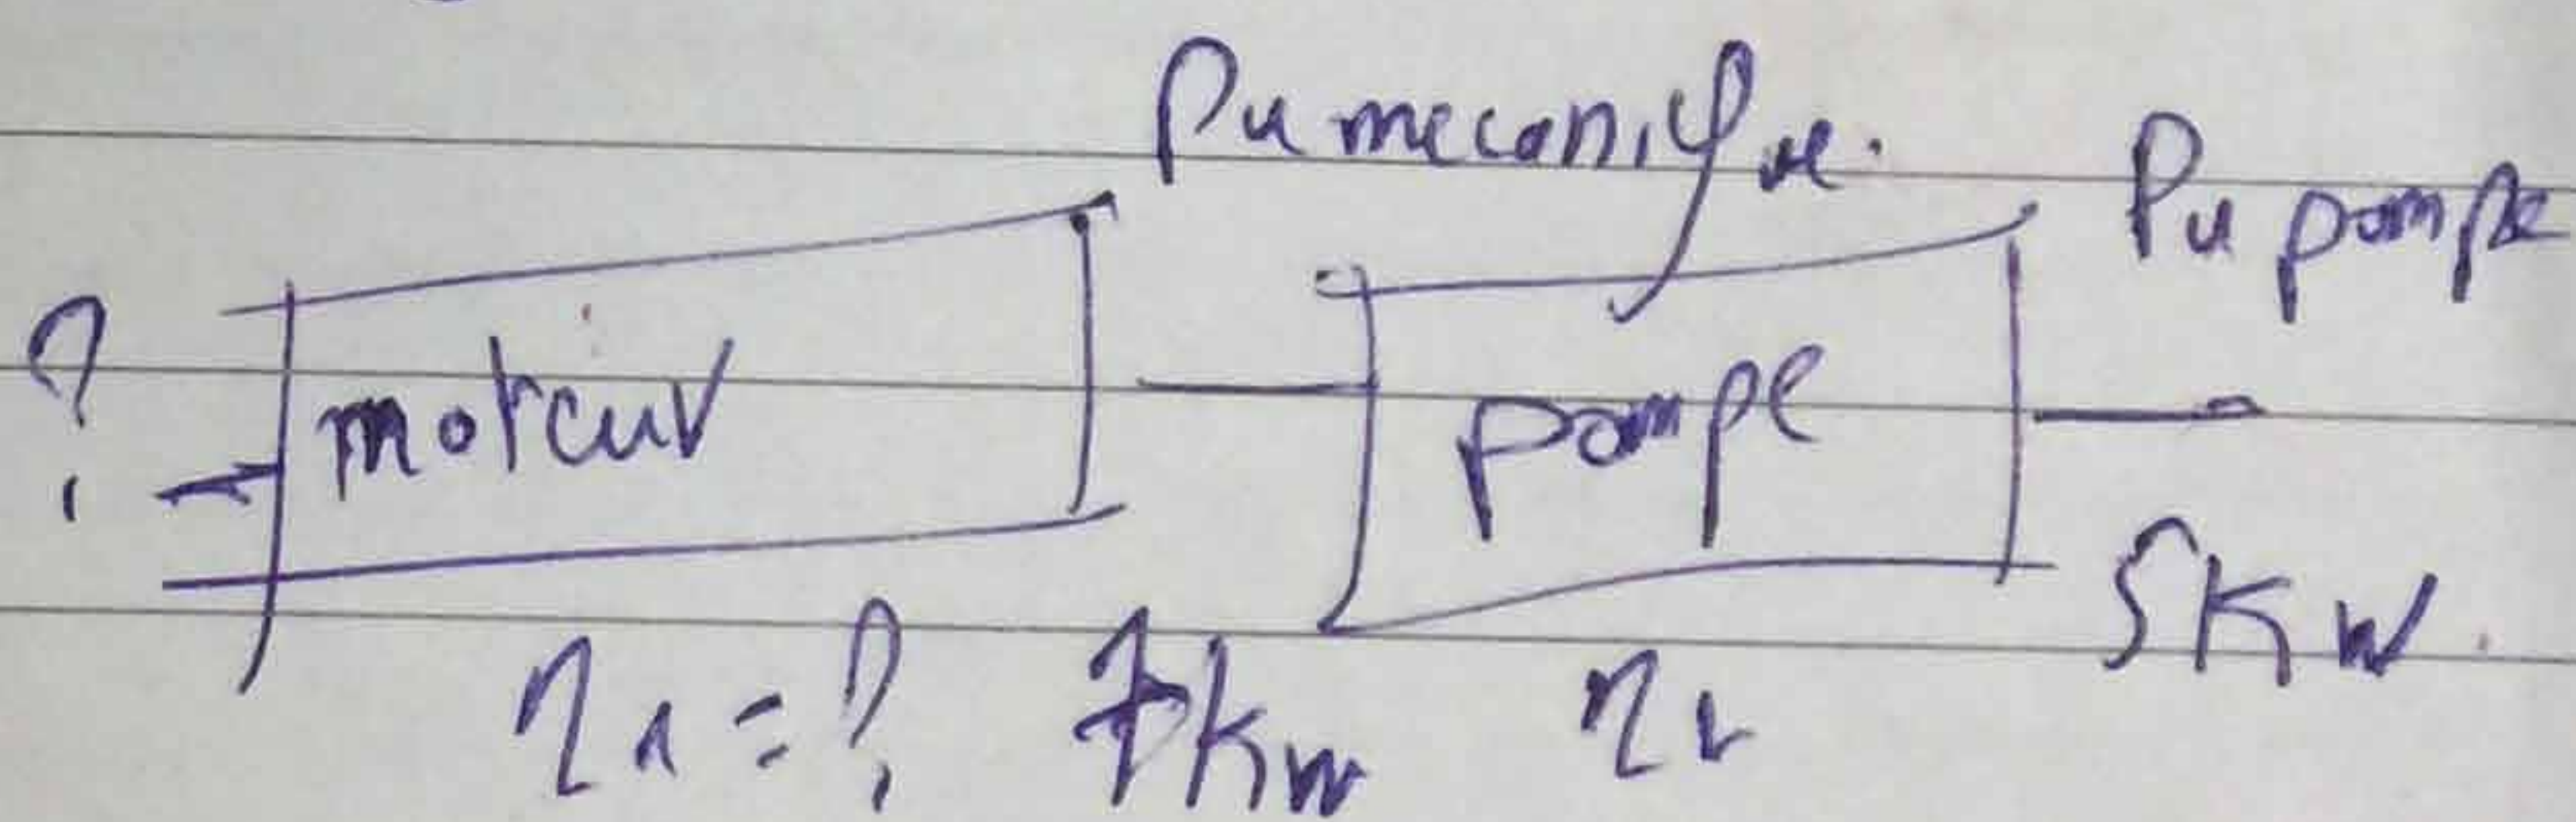 Pu mecanique.
Pu pompe
?
moteur
pompe
η1 = ?
7kw
η2
5Kw.